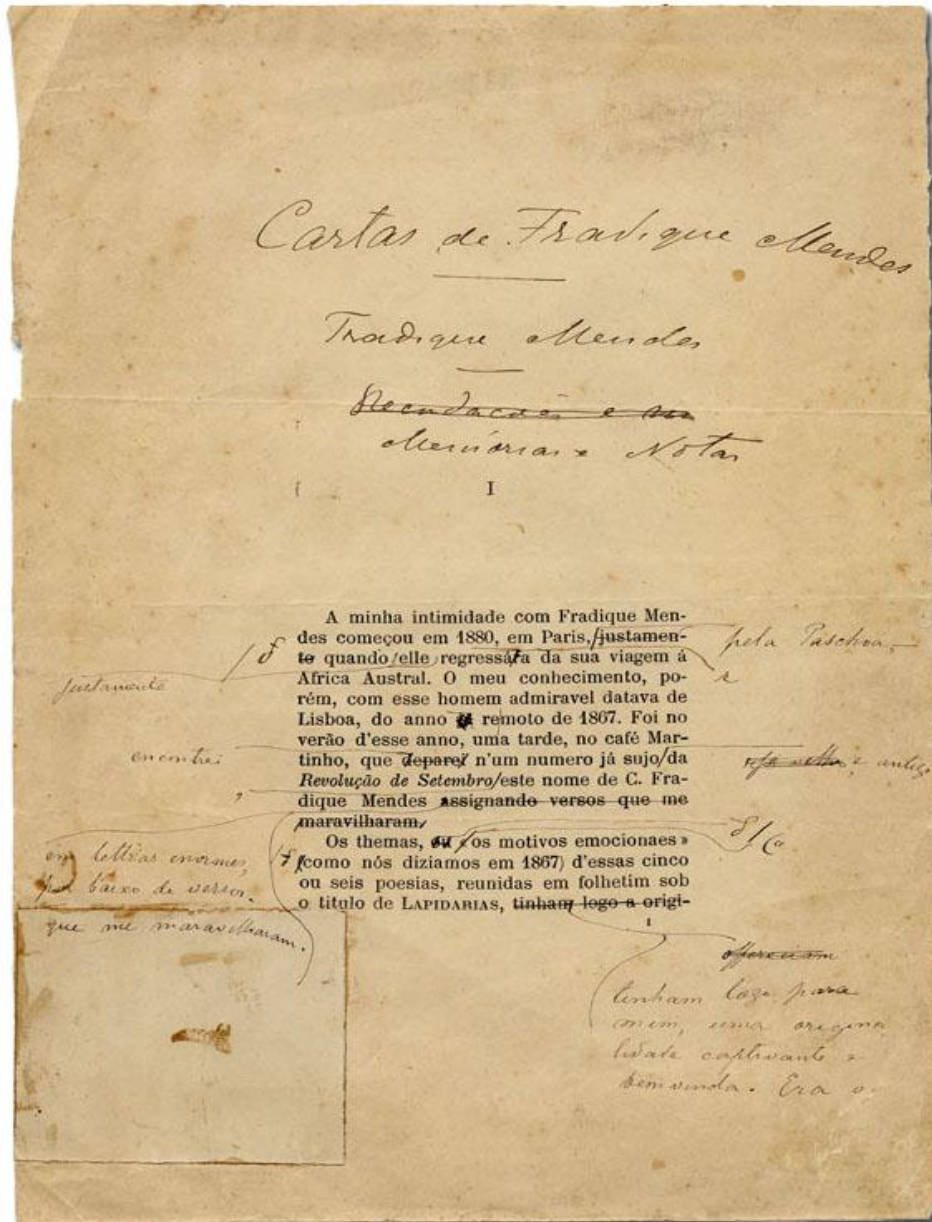 Cartas de Fradique Mendes
Fradique Mendes
Memórias e Notas
I
A minha intimidade com Fradique Men-
des começou em 1880, em Paris, justamen-
to quando elle regressára da sua viagem á
Africa Austral. O meu conhecimento, po-
rém, com esse homem admiravel datava de
Lisboa, do anno remoto de 1867. Foi no
verão d'esse anno, uma tarde, no café Mar-
tinho, que deparei n'um numero já sujo da
Revolução de Setembro este nome de C. Fra-
dique Mendes assignando versos que me
maravilharam.
Os themas, ou os motivos emocionaes»
(como nós diziamos em 1867) d'essas cinco
ou seis poesias, reunidas em folhetim sob
o titulo de LAPIDARIAS, tinham logo a origi-
1
pela Paschoa,
justamente
encontrei
em lettras enormes,
por baixo de versos
que me maravilharam.
offereciam
tinham logo para
mim, uma origina
lidade captivante e
bemvinda. Era o